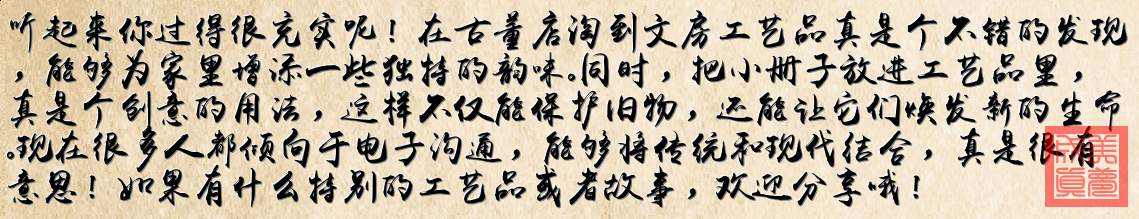 听起来你过得很充实呢！在古董店淘到文房工艺品真是个不错的发现
，能够为家里增添一些独特的韵味。同时，把小册子放进工艺品里，
真是个创意的用法，这样不仅能保护旧物，还能让它们焕发新的生命
。现在很多人都倾向于电子沟通，能够将传统和现代结合，真是很有
意思！如果有什么特别的工艺品或者故事，欢迎分享哦！